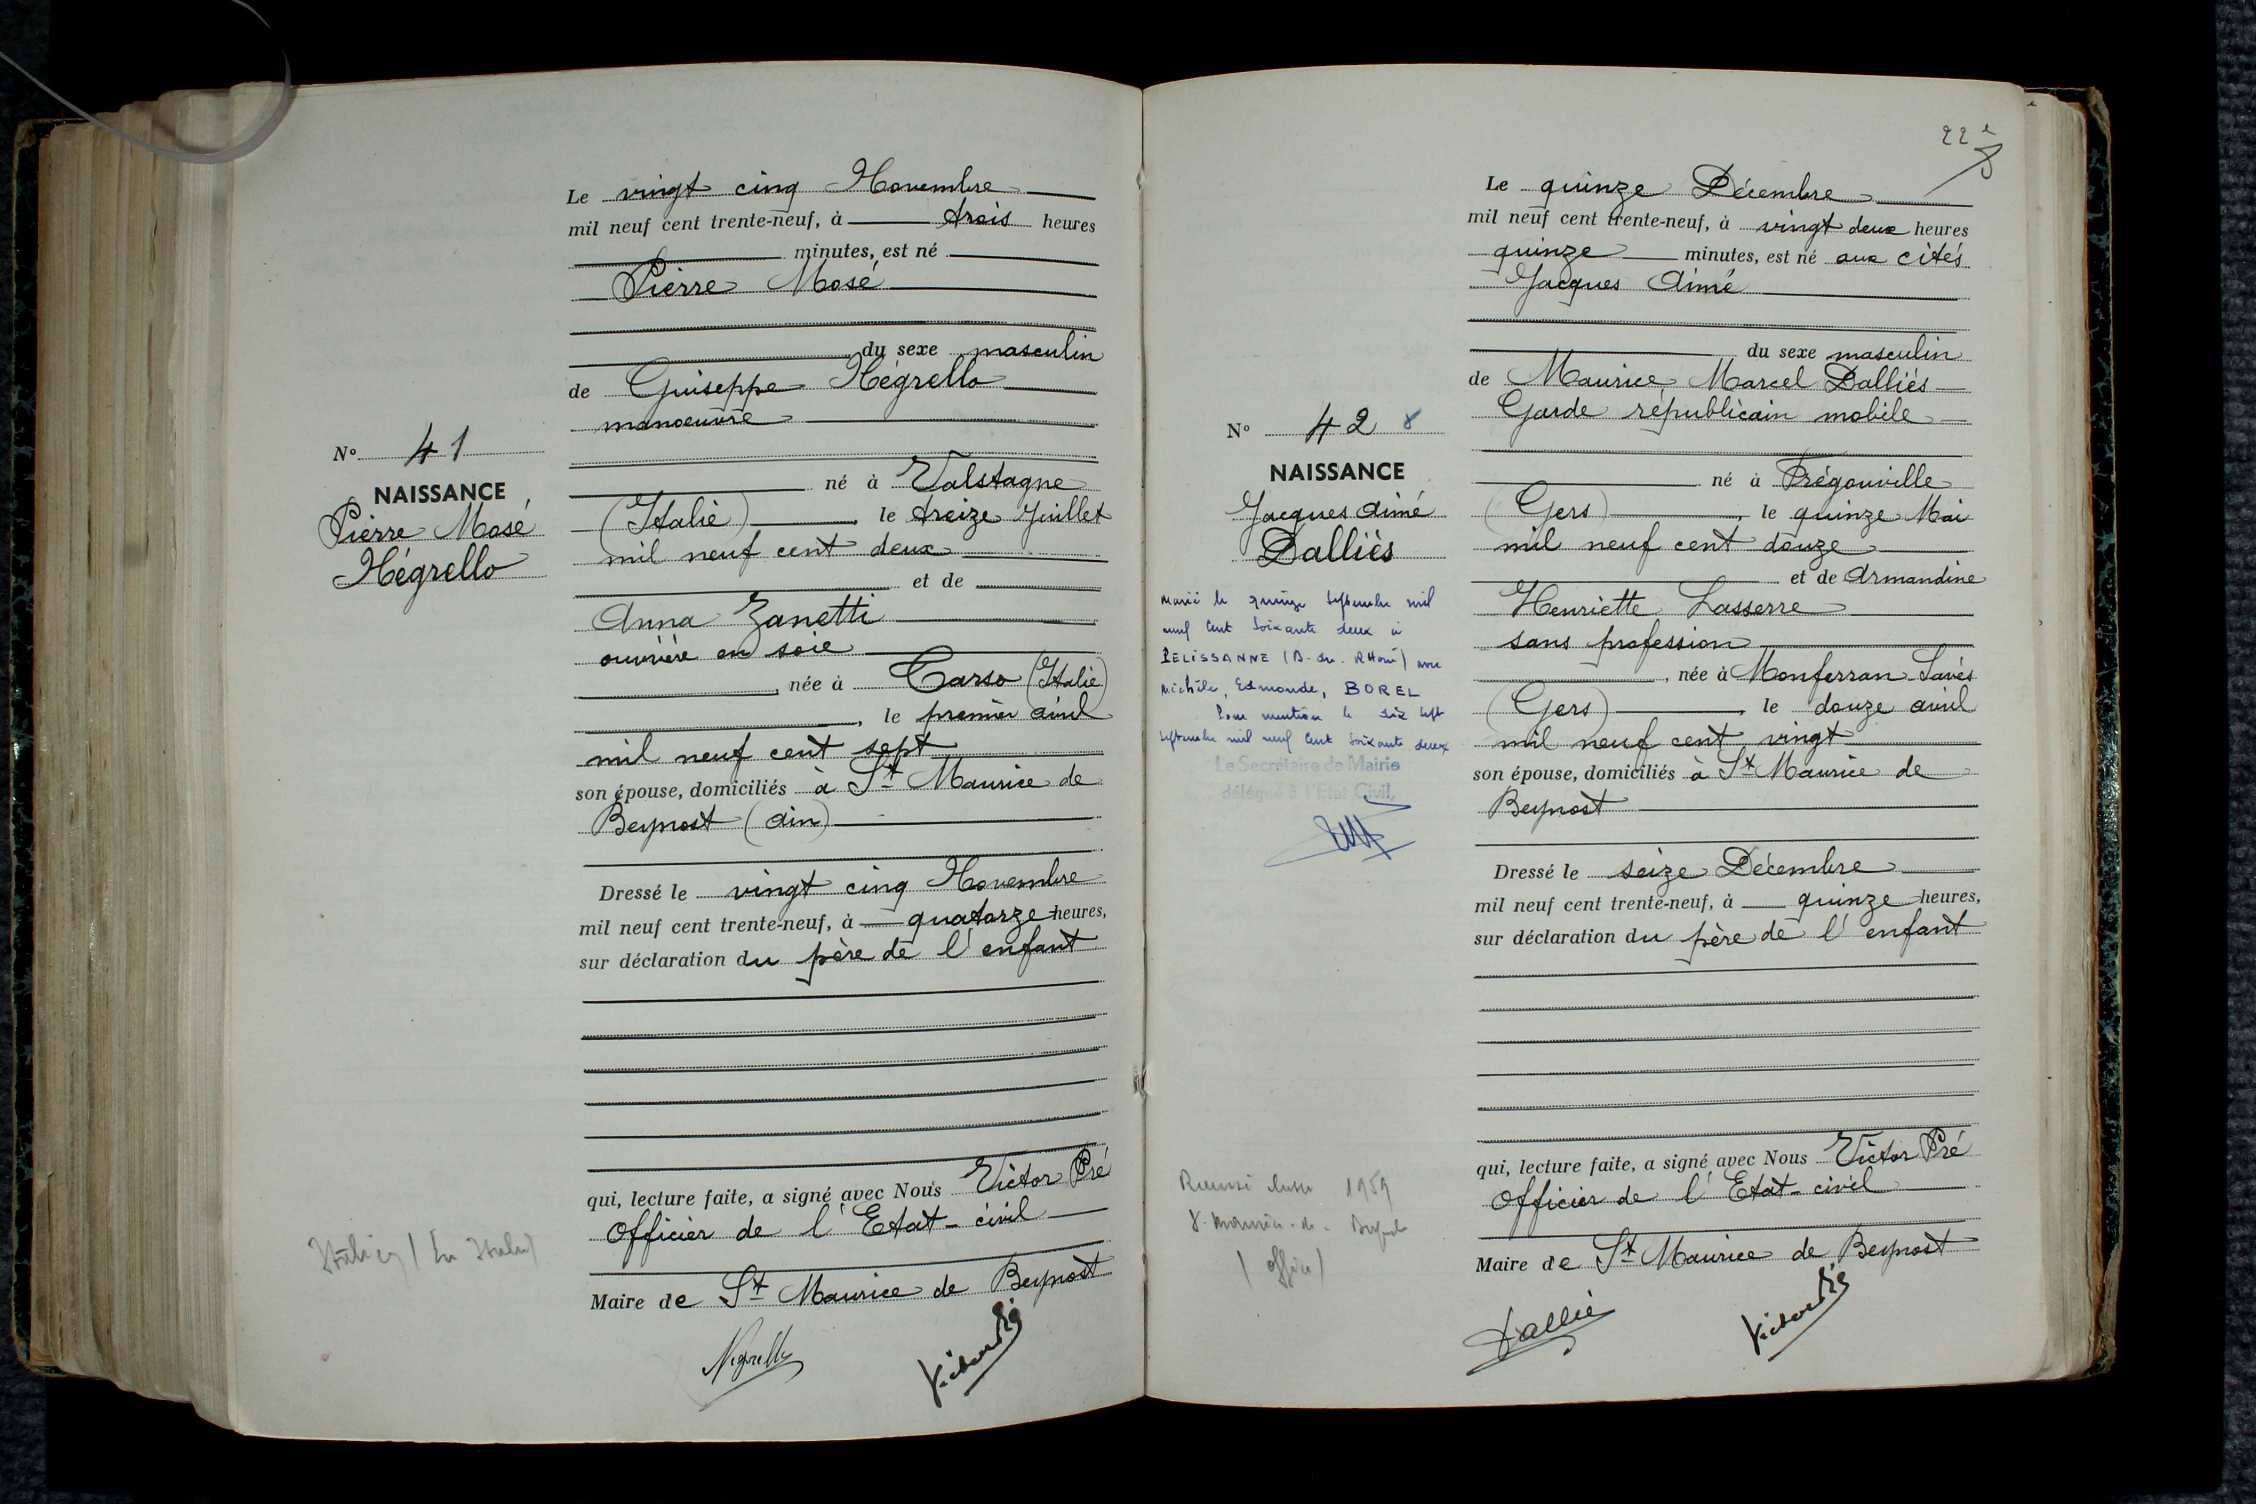 Le vingt cinq Novembre
mil neuf cent trente-neuf, à trois heures
minutes, est né
Pierre Mosé
du sexe masculin
de Guiseppe Négrello
manoeuvre
né à Valstagne
(Italie), le treize Juillet
mil neuf cent deux
et de
Anna Zanetti
ouvrière en soie
, née à Carso (Italie)
, le premier avril
mil neuf cent sept
son épouse, domiciliés à St Maurice de
Beynost (Ain)
Dressé le vingt cinq Novembre
mil neuf cent trente-neuf, à quatorze heures,
sur déclaration du père de l'enfant
qui, lecture faite, a signé avec Nous Victor Pré
Officier de l'Etat-civil
Maire de St Maurice de Beynost
Negrello
Victor Pré
No 41
NAISSANCE
Pierre Mosé
Négrello
22
Le quinze Décembre
mil neuf cent trente-neuf, à vingt deux heures
quinze minutes, est né aux cités
Jacques Aimé
du sexe masculin
de Maurice Marcel Dalliès
Garde républicain mobile
né à Frégouville
(Gers), le quinze Mai
mil neuf cent douze
et de Armandine
Henriette Lasserre
sans profession
, née à Monferran-Savès
(Gers), le douze avril
mil neuf cent vingt
son épouse, domiciliés à St Maurice de
Beynost
Dressé le seize Décembre
mil neuf cent trente-neuf, à quinze heures,
sur déclaration du père de l'enfant
qui, lecture faite, a signé avec Nous Victor Pré
Officier de l'Etat-civil
Maire de St Maurice de Beynost
Dalliè
Victor Pré
No 42 8
NAISSANCE
Jacques Aimé
Dalliès
Marié le quinze septembre mil
neuf cent soixante deux à
PELISSANNE (B. du. RHone) avec
Michèle, Edmonde, BOREL
Pour mention le dix sept
septembre mil neuf cent soixante deux
Le Secrétaire de Mairie
délégué à l'Etat Civil,
1959
(office)